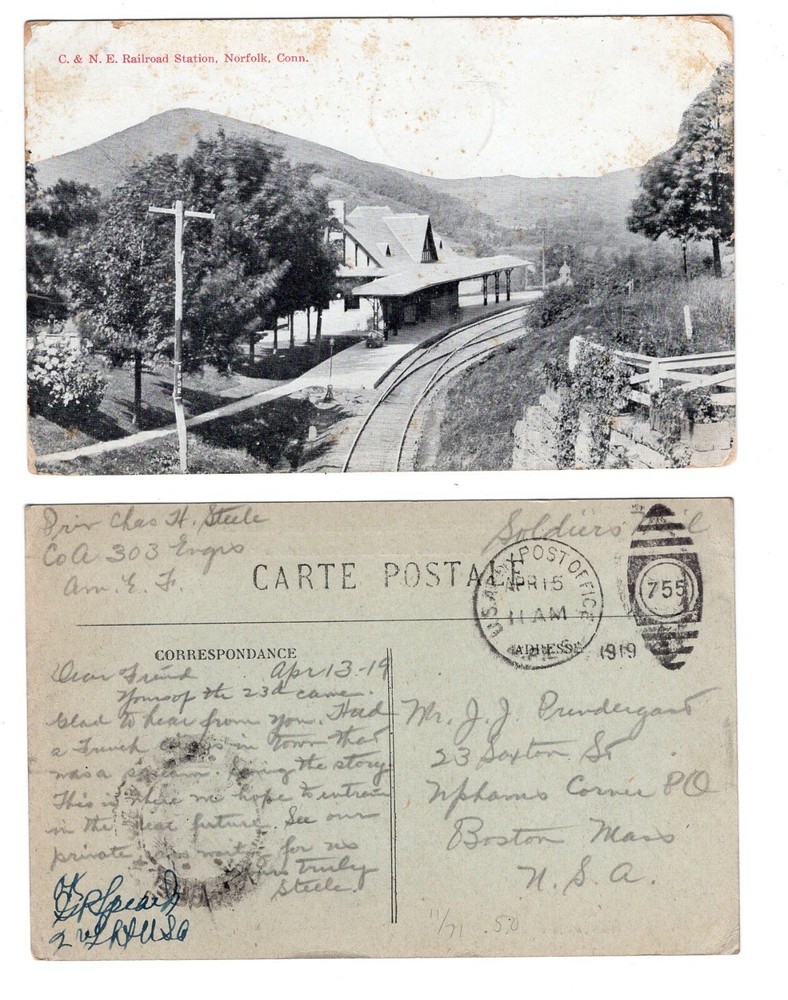 C. & N. E. Railroad Station, Norfolk, Conn.
Priv Chas H. Steele
Co A 303 Engrs
Am. E. F.
Soldiers Mail
CARTE POSTALE
U.S. ARMY POST OFFICE
APR 15
11 AM
1919
755
CORRESPONDANCE
ADRESSE
Dear Friend Apr 13-19
Yours of the 23d came.
Glad to hear from you. Had
a French in town that
was a scream. the story
This is where we hope to entrain
in the near future. See our
private wait for us
Yours truly
Steele.
Mr. J. J. Prendergast
23 Saxton St
Uphams Corner PO
Boston Mass
U. S. A.
OK
2nd Lt USA
11/71 .50